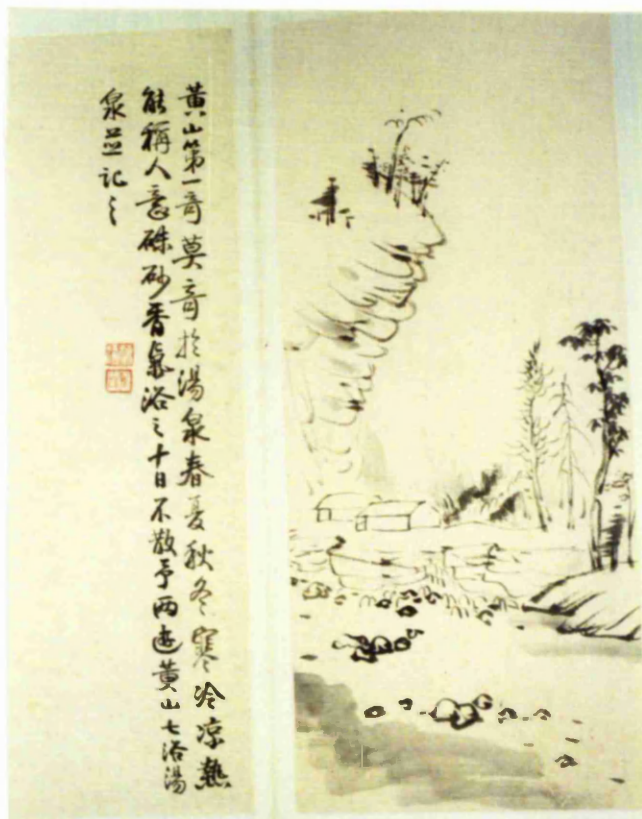 黄山第一奇莫奇於湯泉春夏秋冬寒冷凉熱
能稱人意硃砂香氣浴之十日不散予兩遊黄山七浴湯
泉並記之